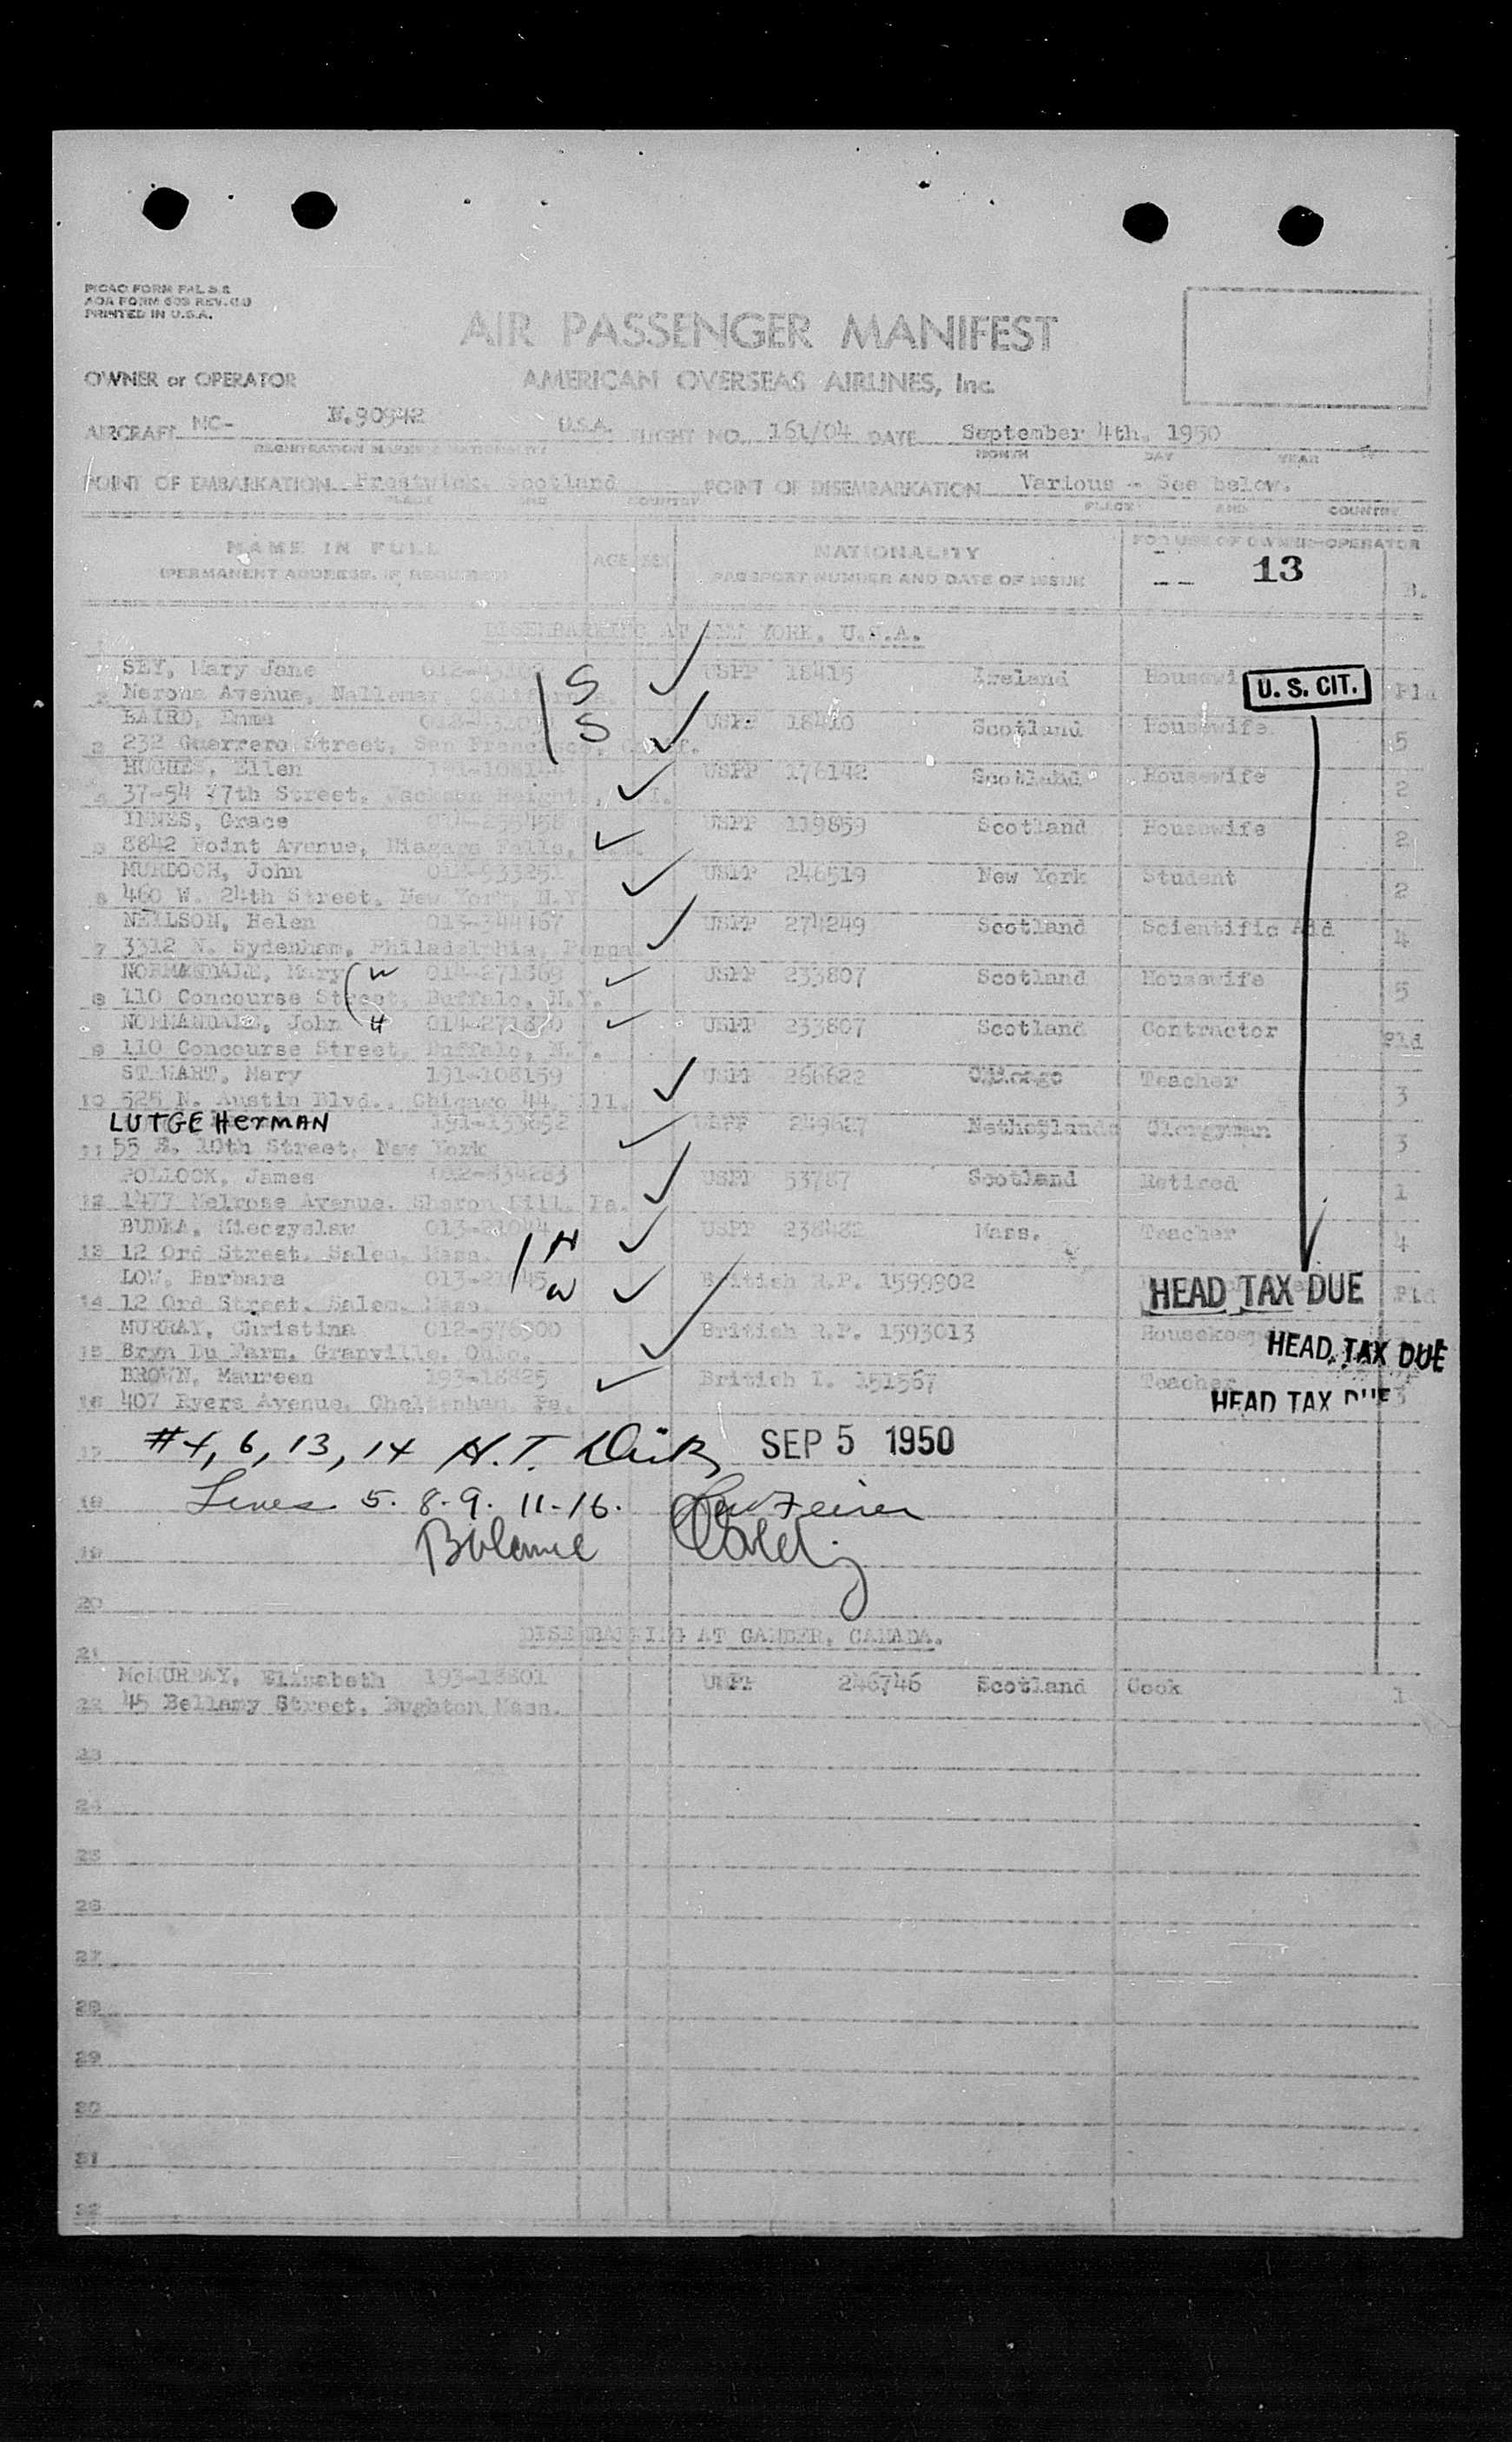 PICAO FORM FAL 3.2
PRINTED IN U.S.A.
AIR PASSENGER MANIFEST
OWNER or OPERATOR AMERICAN OVERSEAS AIRLINES, Inc.
AIRCRAFT NC- N.90942 U.S.A. FLIGHT NO. 161/04 DATE September 4th, 1950
REGISTRATION MARKS NATIONALITY MONTH DAY YEAR
POINT OF EMBARKATION Prestwick, Scotland POINT OF DISEMBARKATION Various - See below.
PLACE AND COUNTRY PLACE AND COUNTRY
NAME IN FULL AGE SEX NATIONALITY FOR USE OF OWNER-OPERATOR
(PERMANENT ADDRESS, IF REQUIRED) PASSPORT NUMBER AND DATE OF ISSUE -- 13 B.
DISEMBARKING AT NEW YORK, U.S.A.
SEY, Mary Jane S USPP 18415 Ireland U. S. CIT.
2 Avenue, California
BAIRD, Emma S USPP 18410 Scotland Housewife
3 232 Guerrero Street, San Francisco, Calif. 5
HUGHES, Ellen USPP 176142 Scotland Housewife
4 37-54 77th Street, Jackson Heights, 2
INNES, Grace USPP 119859 Scotland Housewife
5 8842 Point Avenue, Niagara Falls, 2
MURDOCH, John USPP 246519 New York Student
6 460 W. 24th Street, New York, N.Y. 2
NEILSON, Helen 013-344467 USPP 274249 Scotland Scientific Aid
7 3312 N. Sydenham, Philadelphia, Penna 4
NORMANDALE, Mary W 014-271869 USPP 233807 Scotland Housewife
8 110 Concourse Street, Buffalo, N.Y. 5
NORMANDALE, John H 014-271870 USPP 233807 Scotland Contractor
9 110 Concourse Street, Buffalo, N.Y.
STEWART, Mary 191-108159 USPP 266622 Chicago Teacher
10 525 N. Austin Blvd., Chicago 44, Ill. 3
LUTGE HerMAN USPP 249627 Netherlands Clergyman
11 55 E. 10th Street, New York 3
POLLOCK, James USPP 53787 Scotland Retired
12 1477 Melrose Avenue, Sharon Hill, Pa. 1
BUDKA, Mieczyslaw 013-21044 H USPP 238482 Mass. Teacher
13 12 Ord Street, Salem, Mass. 4
LOW, Barbara 013-21045 W British R.P. 1599902 HEAD TAX DUE
14 12 Ord Street, Salem, Mass.
MURRAY, Christina British R.P. 1593013 HEAD TAX DUE
15 Bryn Du Farm, Granville, Ohio.
BROWN, Maureen 193-18825 British I. 151567 Teacher HEAD TAX DUE
16 407 Ryers Avenue, Cheltenham, Pa. 3
17 #4, 6, 13, 14 H.T. SEP 5 1950
18 Lines 5. 8-9. 11-16.
19 Balance
20
DISEMBARKING AT GANDER, CANADA.
21
McMURRAY, Elizabeth 193-18801 USPP 246746 Scotland Cook
22 45 Bellamy Street, Bughton Mass. 1
23
24
25
26
27
28
29
30
31
32